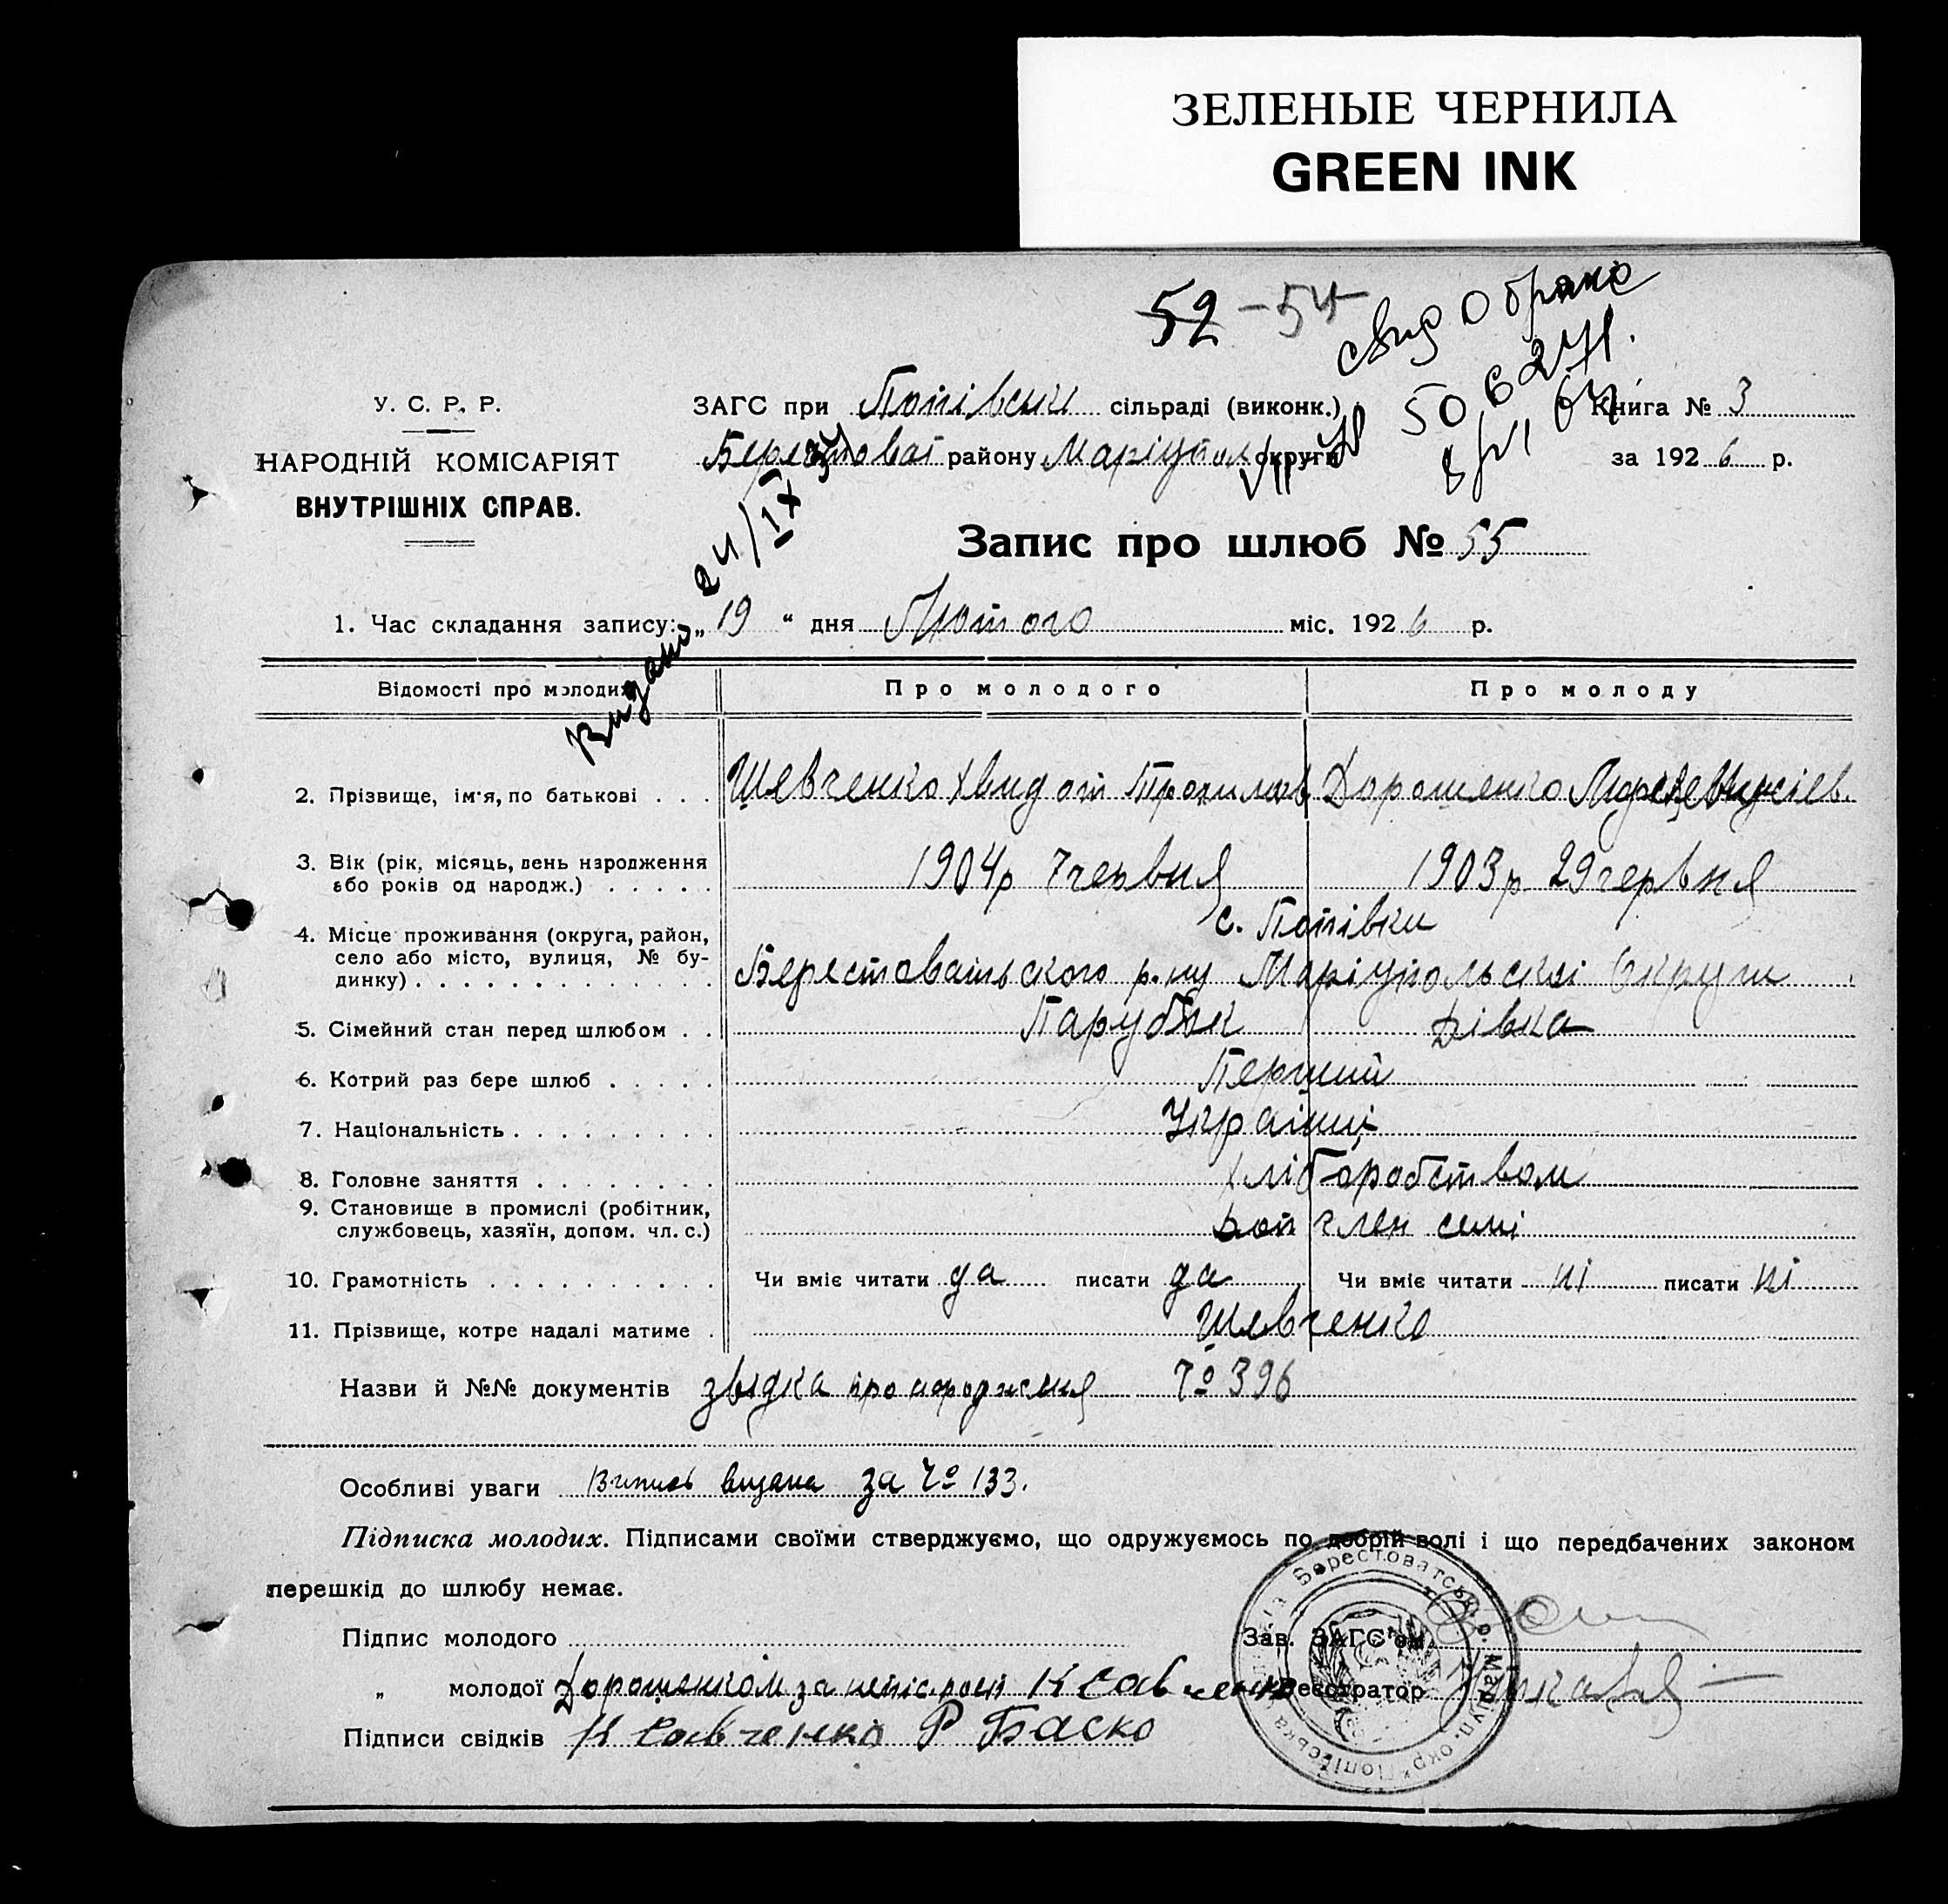 ЗЕЛЕНЫЕ ЧЕРНИЛА
GREEN INK
52 - 54
свид о браке
У. С. Р. Р.
НАРОДНІЙ КОМІСАРІЯТ
ВНУТРІШНІХ СПРАВ.
ЗАГС при Попівськ сільраді (виконк.)
району Маріупол округи
Книга № 3
за 1926 р.
Видано 24/IX
Запис про шлюб № 55
1. Час складання запису: „ 19 “ дня Лютого міс. 1926 р.
Відомості про молодих
Про молодого
Про молоду
2. Прізвище, ім'я, по батькові . . . Шевченко Хвидот Дорошенко
3. Вік (рік, місяць, день народження
або років од народж.) . . . . . 1904р 7 червня 1903р 29 червня
с. Попівки
4. Місце проживання (округа, район,
село або місто, вулиця, № бу-
динку) . . . . . . . . . . . . . Берестоватського р-ну Маріупольскої Округи
5. Сімейний стан перед шлюбом . . Парубок дівка
6. Котрий раз бере шлюб . . . . . Перший
7. Національність . . . . . . . . . Українці
8. Головне заняття . . . . . . . . хліборобством
9. Становище в промислі (робітник,
службовець, хазяїн, допом. чл. с.) доп член семі
10. Грамотність . . . . . . . . . . Чи вміє читати да писати да Чи вміє читати ні писати ні
11. Прізвище, котре надалі матиме . Шевченко
Назви й №№ документів звідка про народження № 396
Особливі уваги Випись видана за № 133.
Підписка молодих. Підписами своїми стверджуємо, що одружуємось по добрій волі і що передбачених законом
перешкід до шлюбу немає.
Підпис молодого
Зав. ЗАГС'ом
„ молодої за К Савченко
Реєстратор
Підписи свідків К Савченко Р Баско